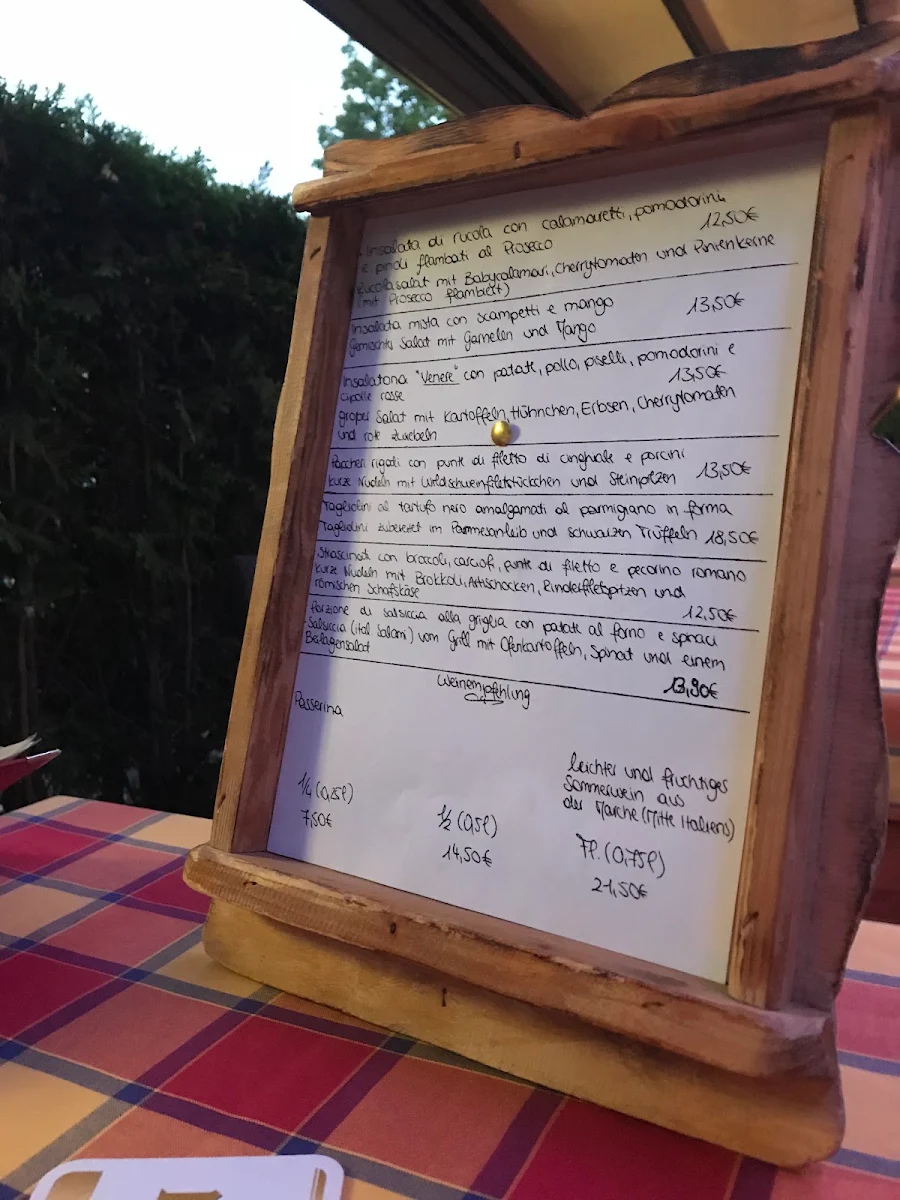 Insalata di rucola con calamaretti, pomodorini
e pinoli flambati al Prosecco 12,50€
Rucolasalat mit Babycalamari, Cherrytomaten und Pinienkerne
(mit Prosecco flambiert)
Insalata mista con scampetti e mango 13,50€
Gemischter Salat mit Garnelen und Mango
Insalatona "Venere" con patate, pollo, piselli, pomodorini e
cipolle rosse 13,50€
großer Salat mit Kartoffeln, Hühnchen, Erbsen, Cherrytomaten
und rote Zwiebeln
Paccheri rigati con punte di filetto di cinghiale e porcini
kurze Nudeln mit Wildschweinfiletstückchen und Steinpilzen 13,50€
Tagliolini al tartufo nero amalgamati al parmigiano in forma
Tagliolini zubereitet im Parmesanleib und schwarzen Trüffeln 18,50€
Strascinati con broccoli, carciofi, punte di filetto e pecorino romano
kurze Nudeln mit Brokkoli, Artischocken, Rinderfiletspitzen und
römischen Schafskäse 12,50€
Porzione di salsiccia alla griglia con patate al forno e spinaci
Salsiccia (ital. Salami) vom Grill mit Ofenkartoffeln, Spinat und einem
Beilagensalat 13,90€
Weinempfehlung
Passerina
leichter und fruchtiges
Sommerwein aus
der Marche (Mitte Italiens)
1/4 (0,25l) 1/2 (0,5l) Fl. (0,75l)
7,50€ 14,50€ 21,50€